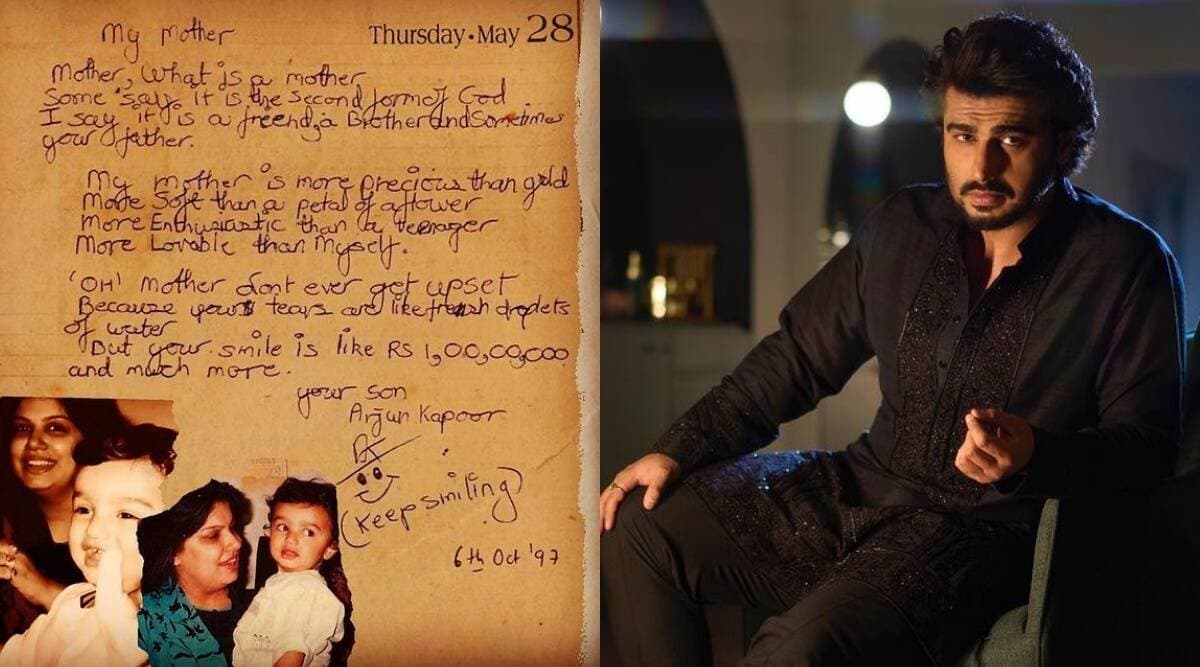 My Mother
Thursday • May 28
Mother, What is a mother
Some say, it is the second form of God
I say it is a freend, a Brother and Sometimes
your father.
My mother is more precious than gold
More Soft than a petal of a flower
More Enthusiastic than a teenager
More Lovable than Myself.
'OH' mother dont ever get upset
Because your tears are like fresh droplets
of water
But your smile is like RS 1,00,00,000
and much more.
your son
Arjun Kapoor
AK
(Keep smiling)
6th Oct '97